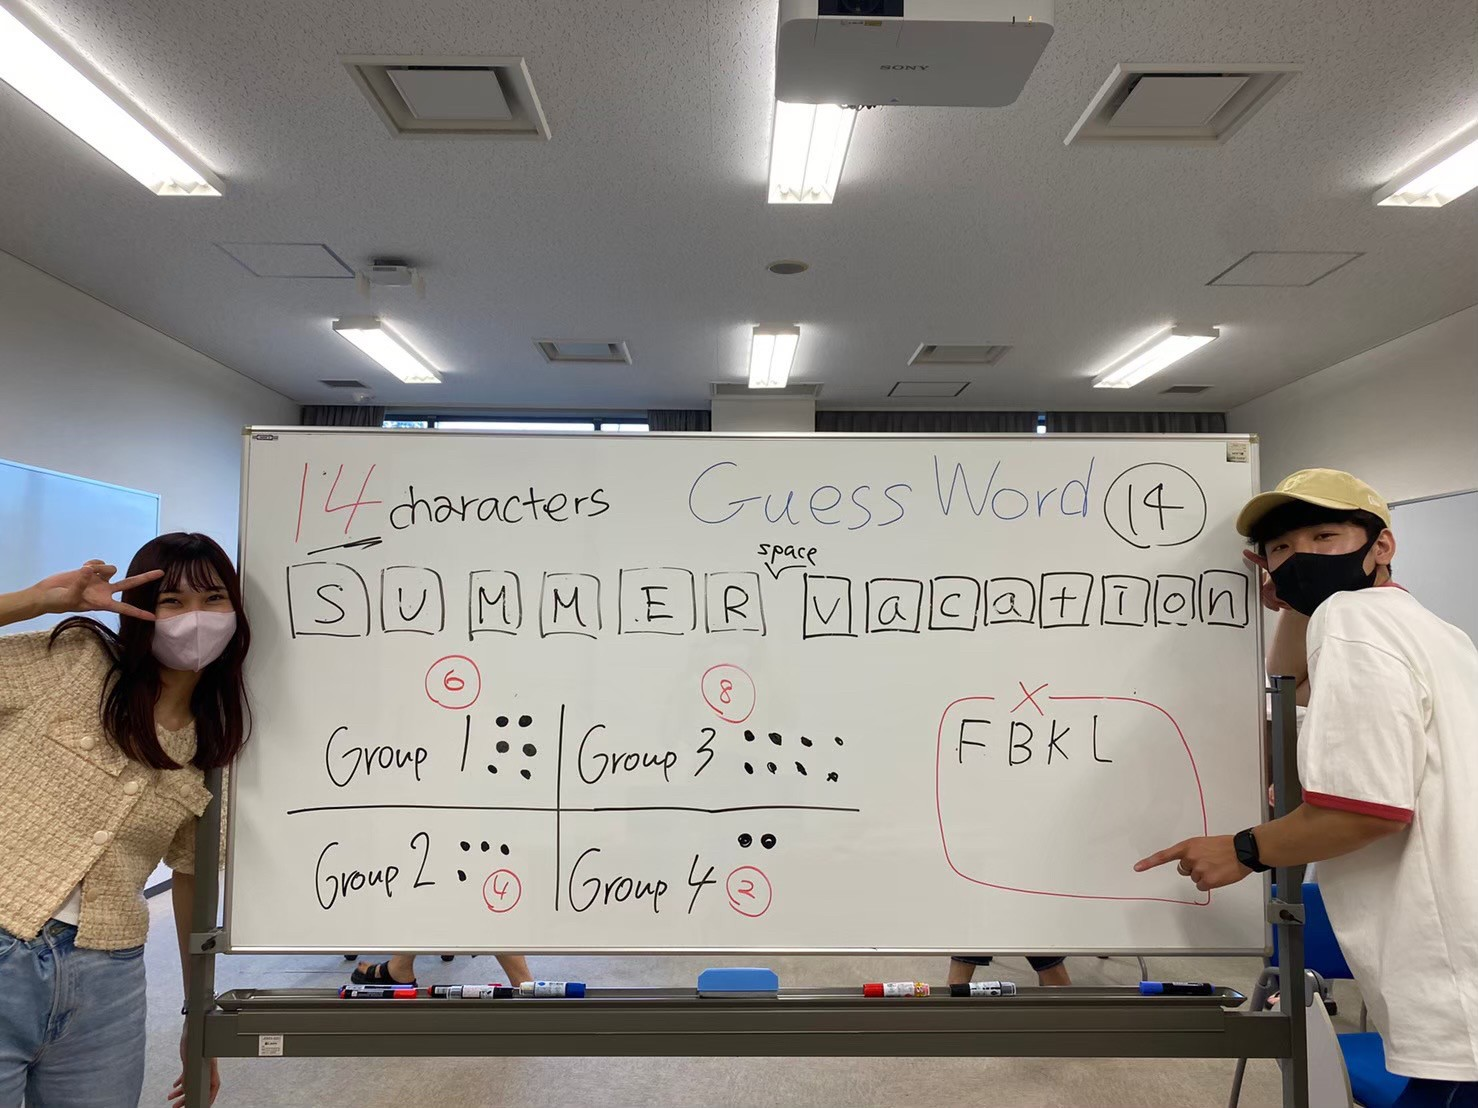 SONY
14 characters
Guess Word 14
space
SUMMER vacation
6
8
Group 1
Group 3
Group 2
4
Group 4
2
X
F B K L